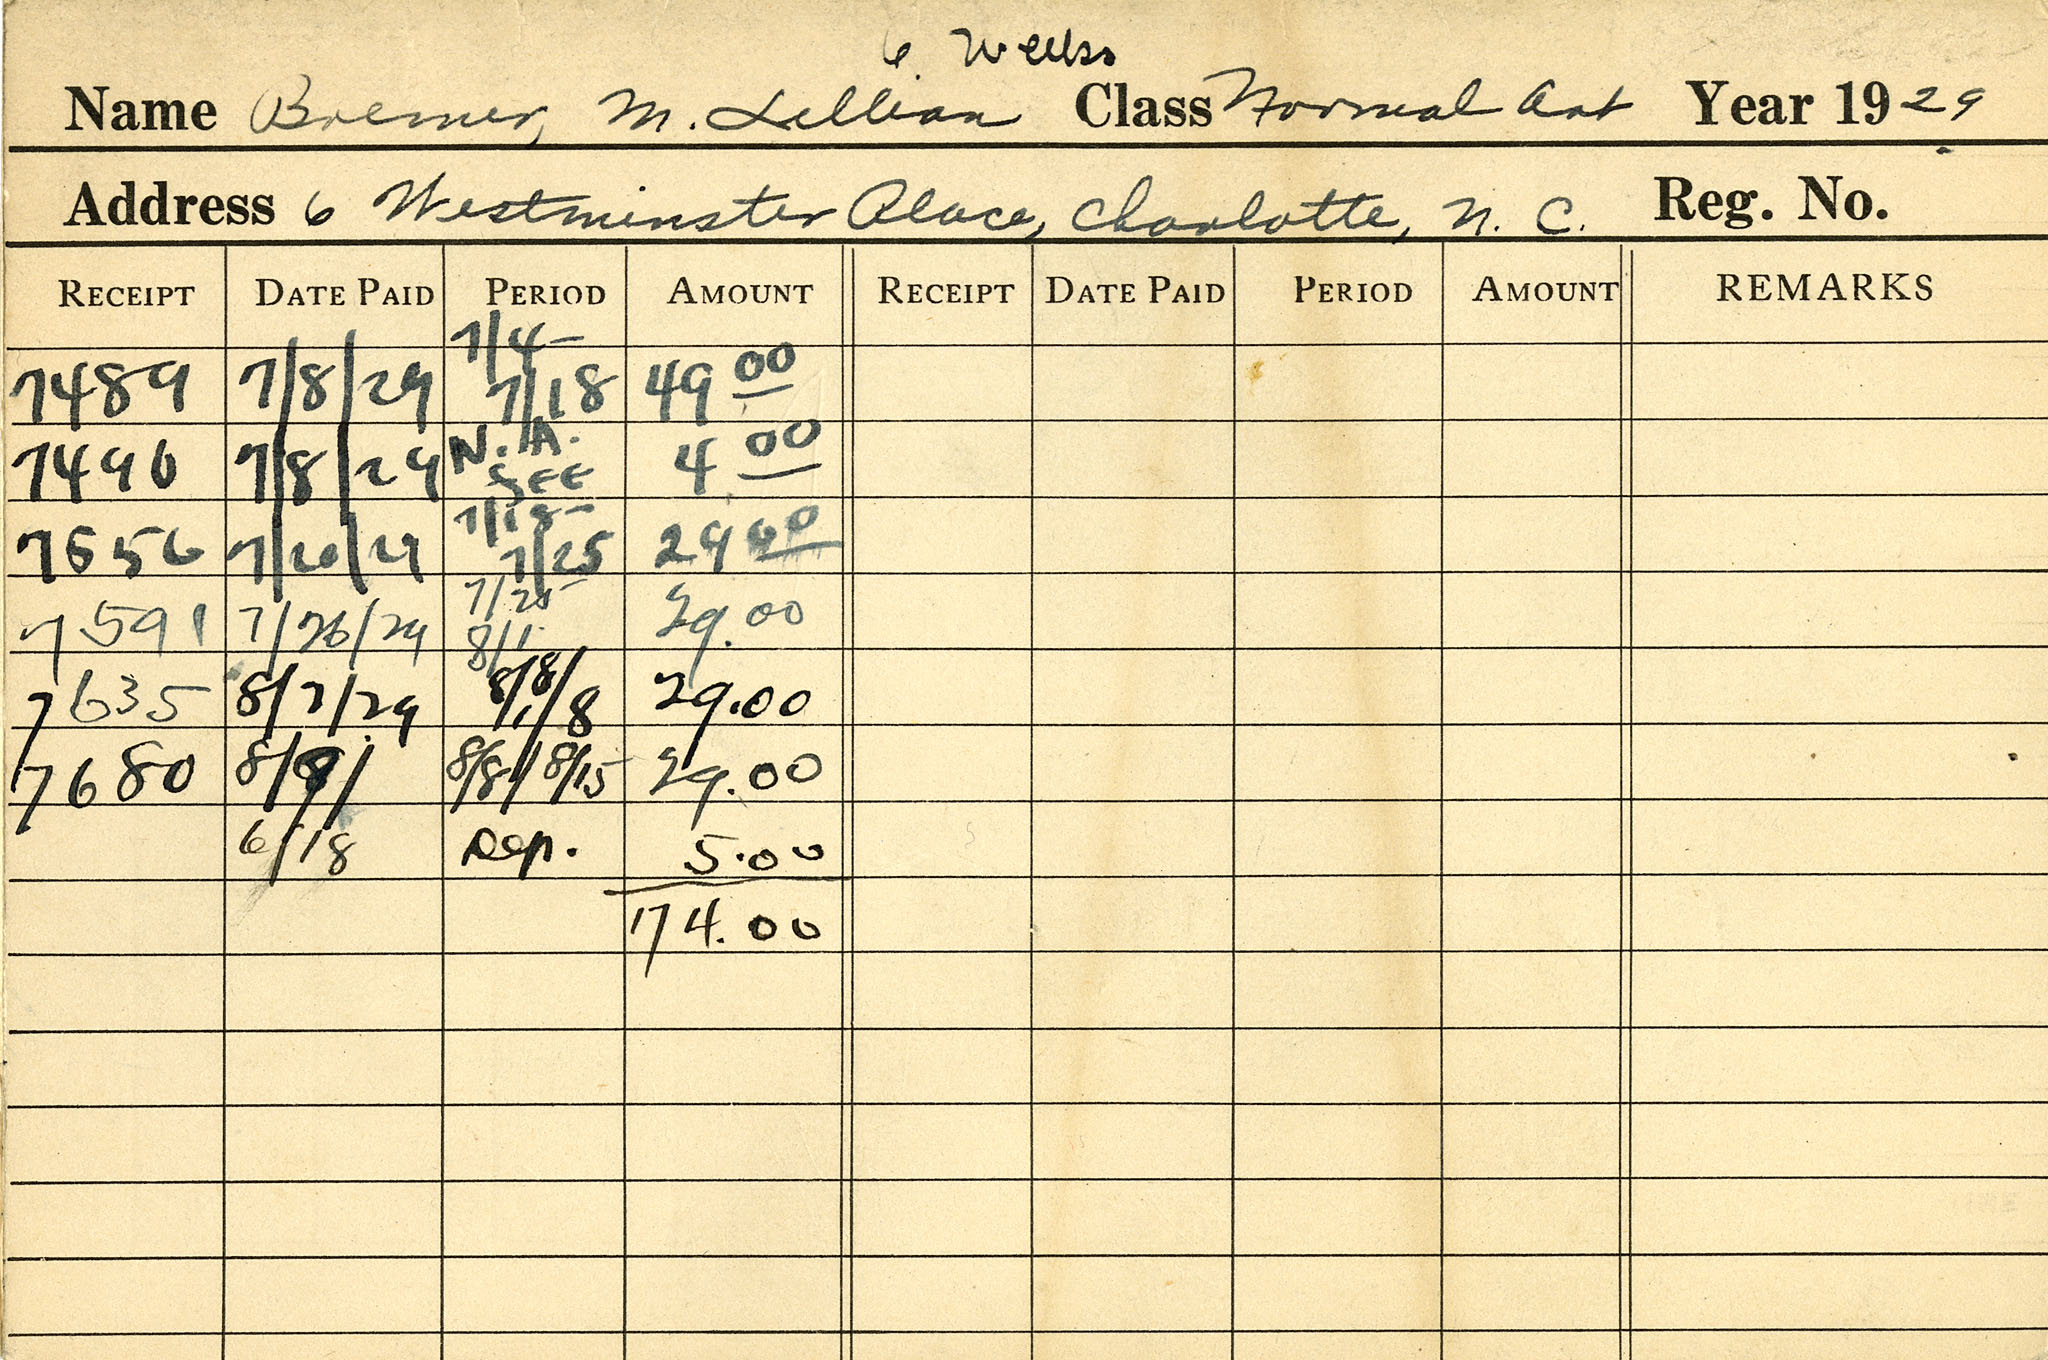 6 Weeks
Name Bremer, M. Lillian Class Normal Art Year 1929
Address 6 Westminster Place, Charlotte, N. C. Reg. No.
RECEIPT DATE PAID PERIOD AMOUNT RECEIPT DATE PAID PERIOD AMOUNT REMARKS
7/4-
7489 7/8/29 7/18 49 00
N. A.
7490 7/8/29 FEE 4 00
7/18-
7556 7/20/29 7/25 29 00
7/25
7591 7/26/29 8/1 29.00
7635 8/2/29 8/1/8/8 29.00
7680 8/9/ 8/8/8/15 29.00
6/18 Dep. 5.00
174.00